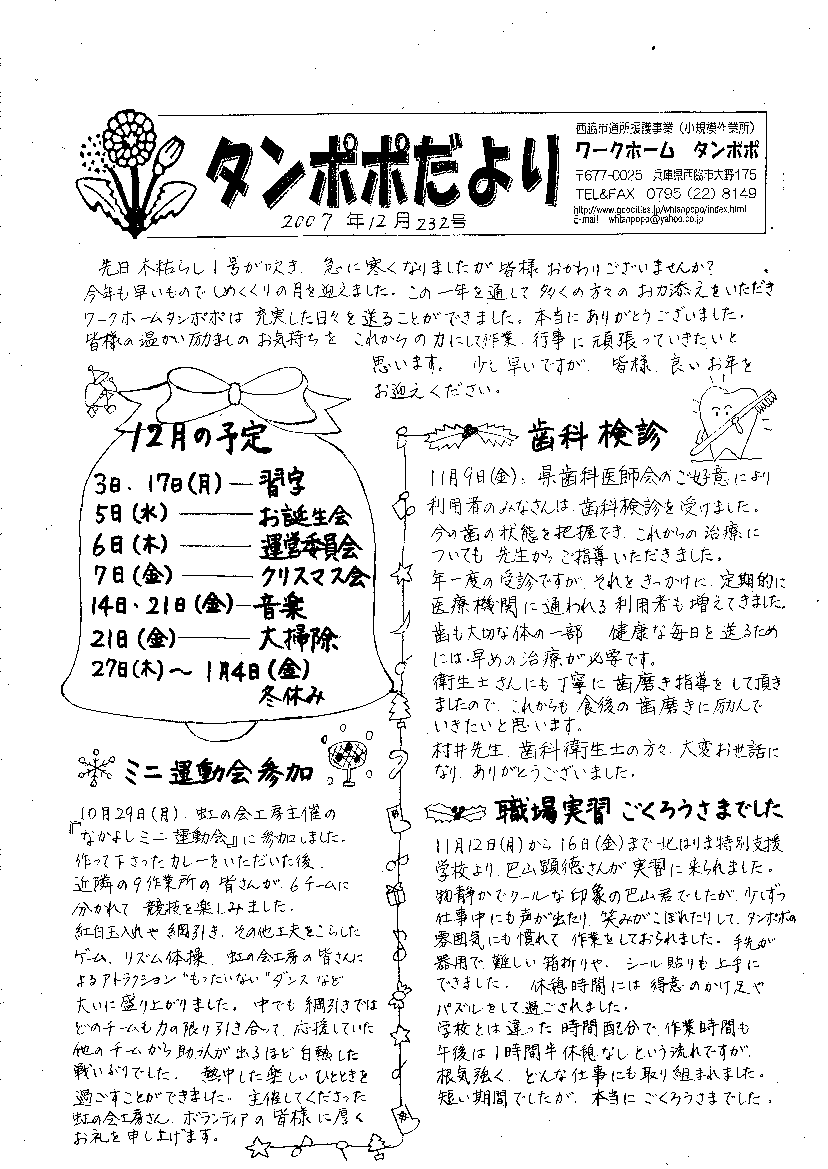 タンポポだより
2007年12月232号
西脇市通所援護事業（小規模作業所）
ワークホーム　タンポポ
〒677-0025　兵庫県西脇市大野175
TEL&FAX　0795（22）8149
http://www.geocities.jp/whtanpopo/index.html
e-mail　whtanpopo@yahoo.co.jp
先日木枯らし1号が吹き、急に寒くなりましたが皆様おかわりございませんか？
今年も早いものでしめくくりの月を迎えました。この一年を通して多くの方々のお力添えをいただき
ワークホームタンポポは充実した日々を送ることができました。本当にありがとうございました。
皆様の温かい励ましのお気持ちをこれからの力にして作業、行事に頑張っていきたいと
思います。少し早いですが、皆様、良いお年を
お迎えください。
12月の予定
3日、17日(月)―習字
5日(水)―お誕生会
6日(木)―運営委員会
7日(金)―クリスマス会
14日・21日(金)―音楽
21日(金)―大掃除
27日(木)～1月4日(金)
冬休み
ミニ運動会参加
10月29日(月)、虹の会工房主催の
『なかよしミニ運動会』に参加しました。
作って下さったカレーをいただいた後、
近隣の9作業所の皆さんが、6チームに
分かれて競技を楽しみました。
紅白玉入れや綱引き、その他工夫をこらした
ゲーム、リズム体操、虹の会工房の皆さんに
よるアトラクション“もったいない”ダンスなど
大いに盛り上がりました。中でも綱引きでは
どのチームも力の限り引き合って、応援していた
他のチームから助っ人が出るほど白熱した
戦いぶりでした。熱中した楽しいひとときを
過ごすことができました。主催してくださった
虹の会工房さん、ボランティアの皆様に厚く
お礼を申し上げます。
歯科検診
11月9日(金)、県歯科医師会のご好意により
利用者のみなさんは、歯科検診を受けました。
今の歯の状態を把握でき、これからの治療に
ついても先生からご指導いただきました。
年一度の受診ですが、それをきっかけに、定期的に
医療機関に通われる利用者も増えてきました。
歯も大切な体の一部　健康な毎日を送るため
には早めの治療が必要です。
衛生士さんにも丁寧に歯磨き指導をして頂き
ましたので、これからも食後の歯磨きに励んで
いきたいと思います。
村井先生、歯科衛生士の方々、大変お世話に
なり、ありがとうございました。
職場実習ごくろうさまでした
11月12日(月)から16日(金)まで北はりま特別支援
学校より、巴山顕徳さんが実習に来られました。
物静かでクールな印象の巴山君でしたが、少しずつ
仕事中にも声が出たり、笑みがこぼれたりして、タンポポの
雰囲気にも慣れて作業をしておられました。手先が
器用で、難しい箱折りや、シール貼りも上手に
できました。休憩時間には得意のかけ足や
パズルをして過ごされました。
学校とは違った時間配分で、作業時間も
午後は1時間半休憩なしという流れですが、
根気強く、どんな仕事にも取り組まれました。
短い期間でしたが、本当にごくろうさまでした。